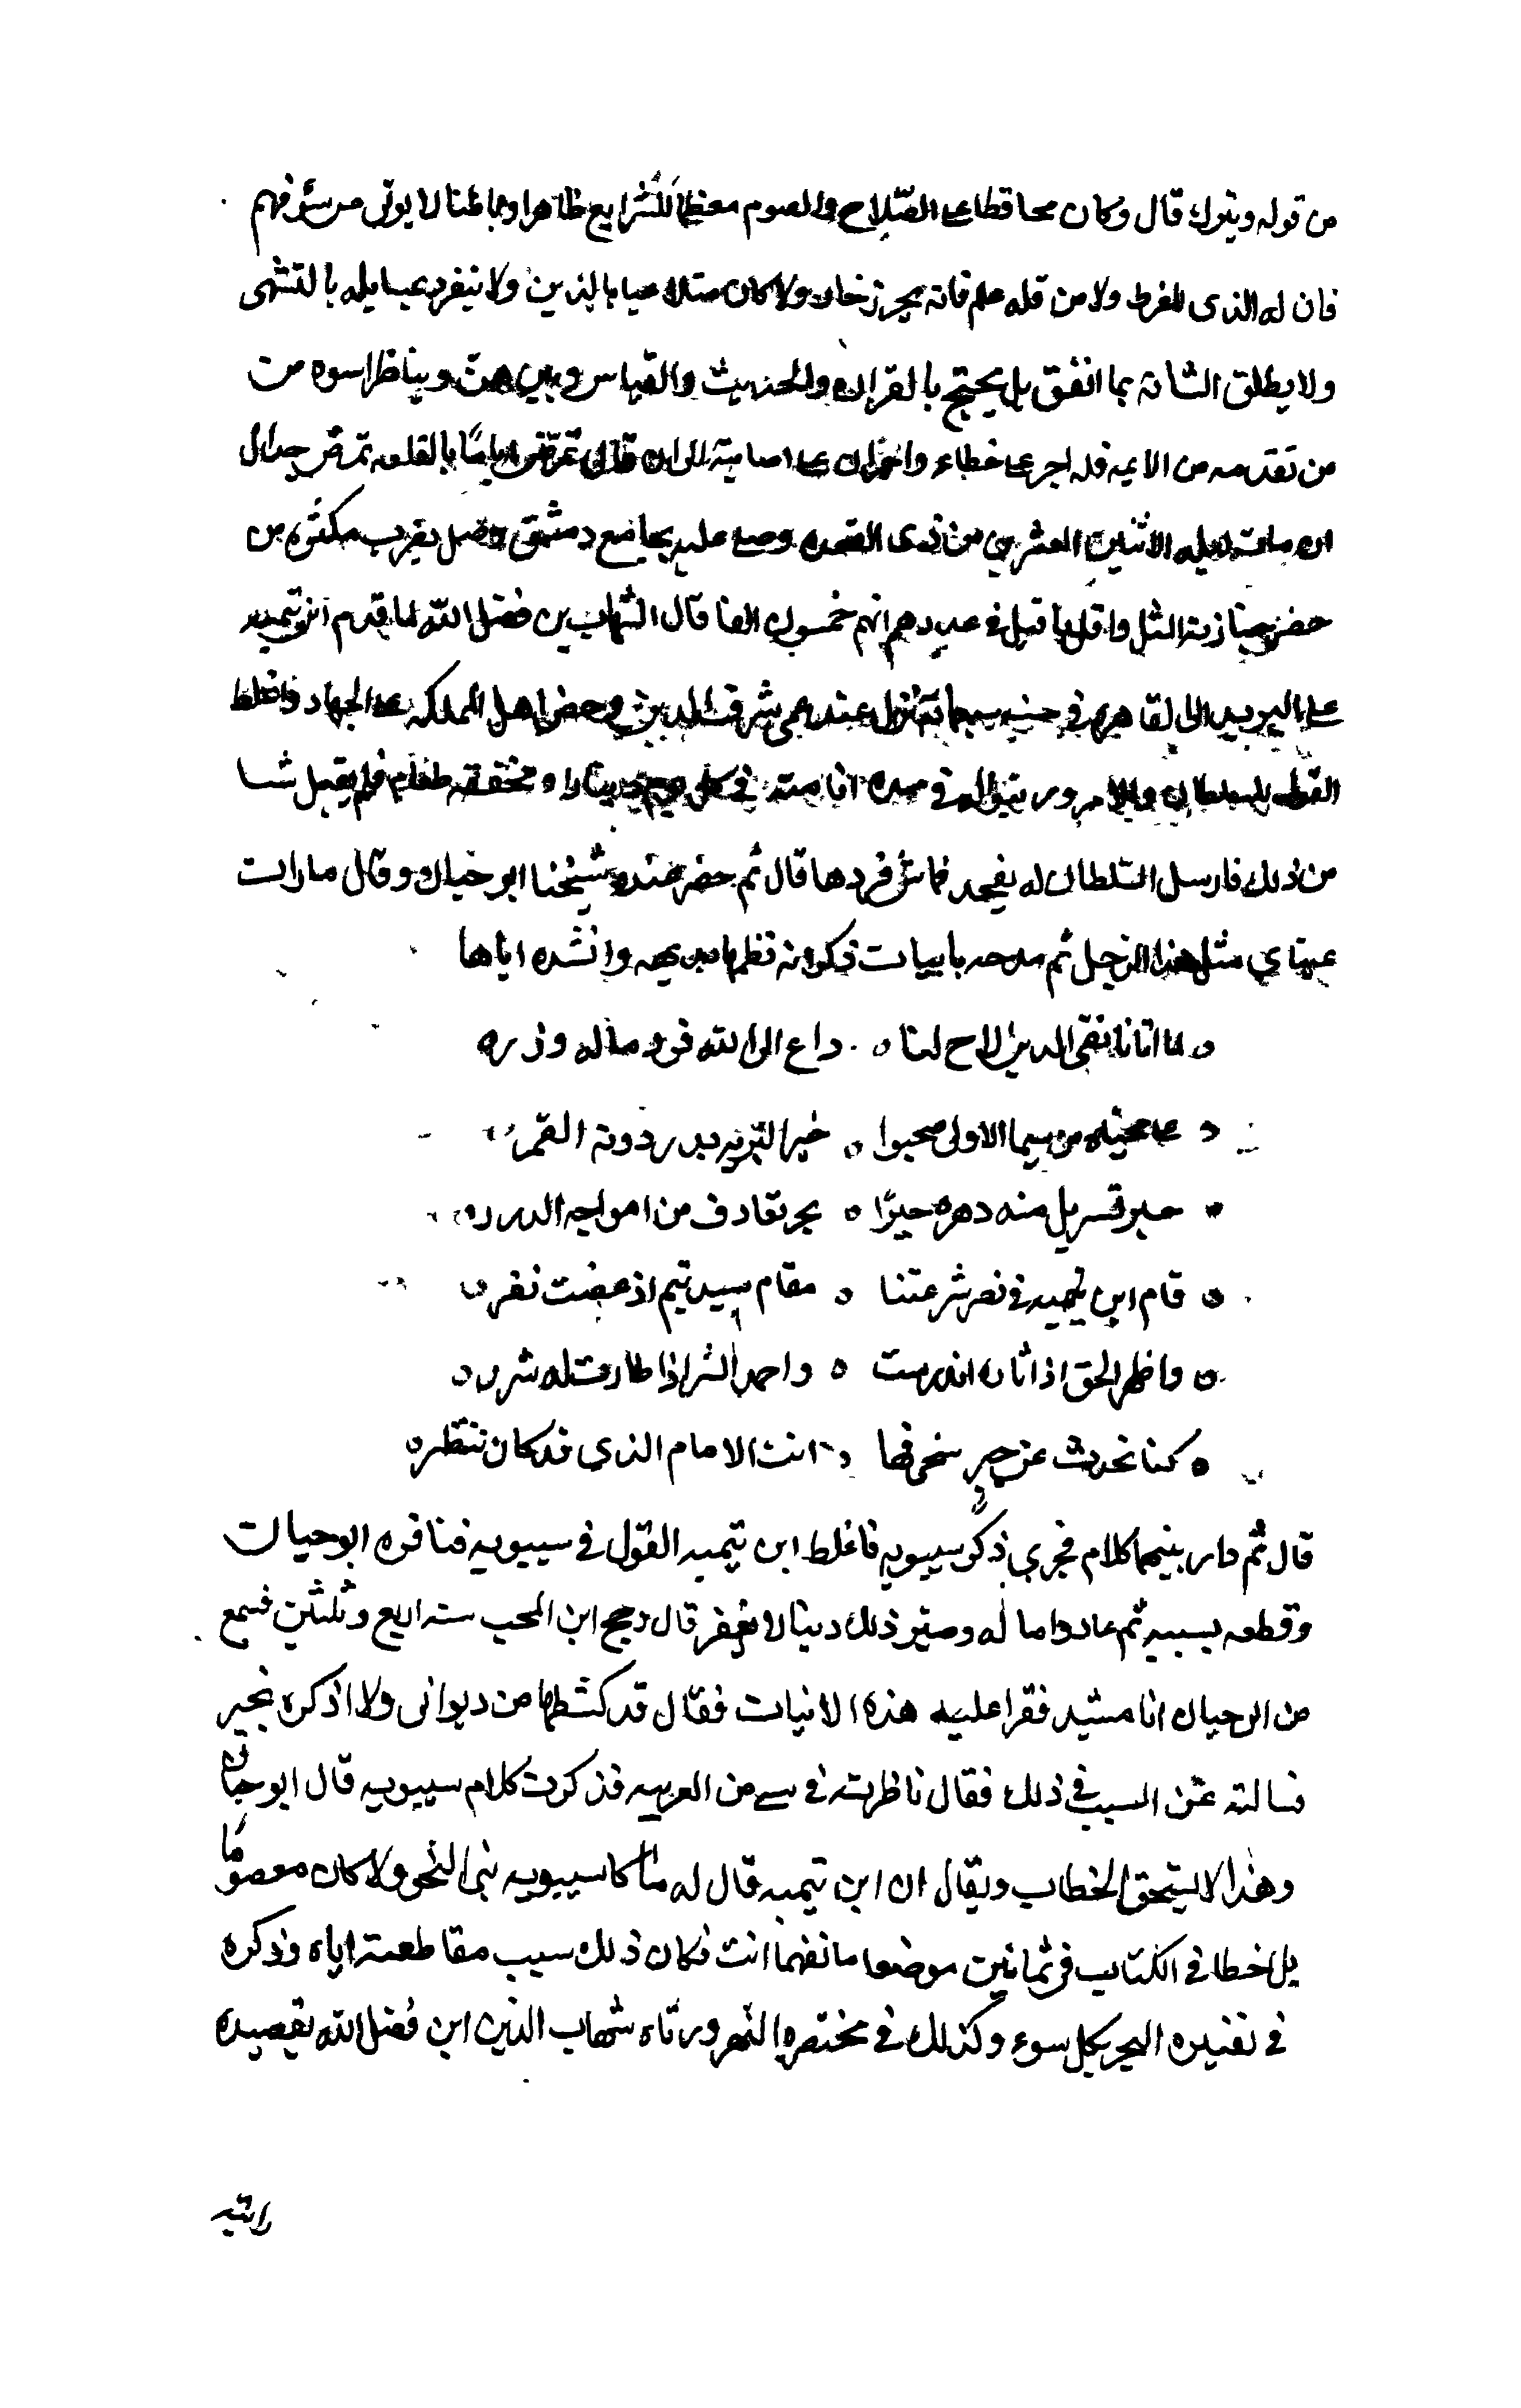 من قوله ويترك قال وكان محافظا على الصلاح والصوم معظما للشرايع ظاهرا وباطنا لا يوتى من سوء فهم
فان له الذى المفرط ولا من قله علم فانه بحر زخار ولا كان متلاعبا بالدين ولا ينفرد بمسايله بالتشهى
ولا يطلق لسانه بما اتفق بل يحتج بالقران والحديث والقياس ويبرهن ويناظر اسوه من
من تقدمه من الايمه فله اجر على خطاءه واجران على اصابته الى ان قال تمرض اياما بالقلعه بمرض جد الى
ان مات ليله الاثنين العشرين من ذى القعده وصلى عليه بجامع دمشق وضرب بكثره من
حضر جنازته المثل واقل ما قيل فى عددهم انهم خمسون الفا قال الشهاب بن فضل الله لما قدم ابن تيميه
على البريد الى القاهره فى سنه سبعمائه نزل عند عمى شرف الدين وحض اهل المملكه على الجهاد واغلظ
القول للسلطان والامرا ورتبوا له فى مده اقامته فى كل يوم دينارا ومخفقه طعام فلم يقبل شيا
من ذلك فارسل السلطان له بقجه قماش فردها قال ثم حضر عنده شيخنا ابو حيان وقال ما رات
عيناي مثل هذا الرجل ثم مدحه بابيات ذكر انه نظمها بديهه وانشده اياها
لما اتانا تقى الدين لاح لنا ٥ داع الى الله فرد ما له وزره
على محياه من سيما الاولى صحبوا ٥ خير البريه بدر دونه القمر
حبر تسربل منه دهره حبرا ٥ بحر تقادف من امواجه الدرر
قام ابن تيميه فى نصر شرعتنا ٥ مقام سيد تيم اذ عصت نفر
واظهر الحق اذ اثاره اندرست ٥ واخمد الشر اذا طارت له شرر
كنا نحدث عن حبر سيحي فها ٥ انت الامام الذي قد كان ننتظره
قال ثم دار بينهما كلام فجري ذكر سيبويه فاغلظ ابن تيميه القول فى سيبويه فنافره ابو حيان
وقطعه بسببه ثم عاد ذاما له وصير ذلك دينا لا يغفر قال وحج ابن المحب سنه اربع وثلثين فسمع
من ابى حيان اناشيد فقرا عليه هذه الابيات فقال قد كشطها من ديوانى ولا اذكره بخير
فسالته عن السبب فى ذلك فقال ناظرته فى شى من العربيه فذكرت كلام سيبويه قال ابو حيان
وهذا لا يستحق الخطاب ويقال ان ابن تيميه قال له ما كا سيبويه نبى النحو ولا كان معصوما
بل اخطا فى الكتاب فى ثمانين موضعا ما تفهمها انت فكان ذلك سبب مقاطعته اياه وذكره
فى تفسيره البحر بكل سوء وكذلك فى مختصره النهر ورثاه شهاب الدين ابن فضل الله بقصيده
رائيه